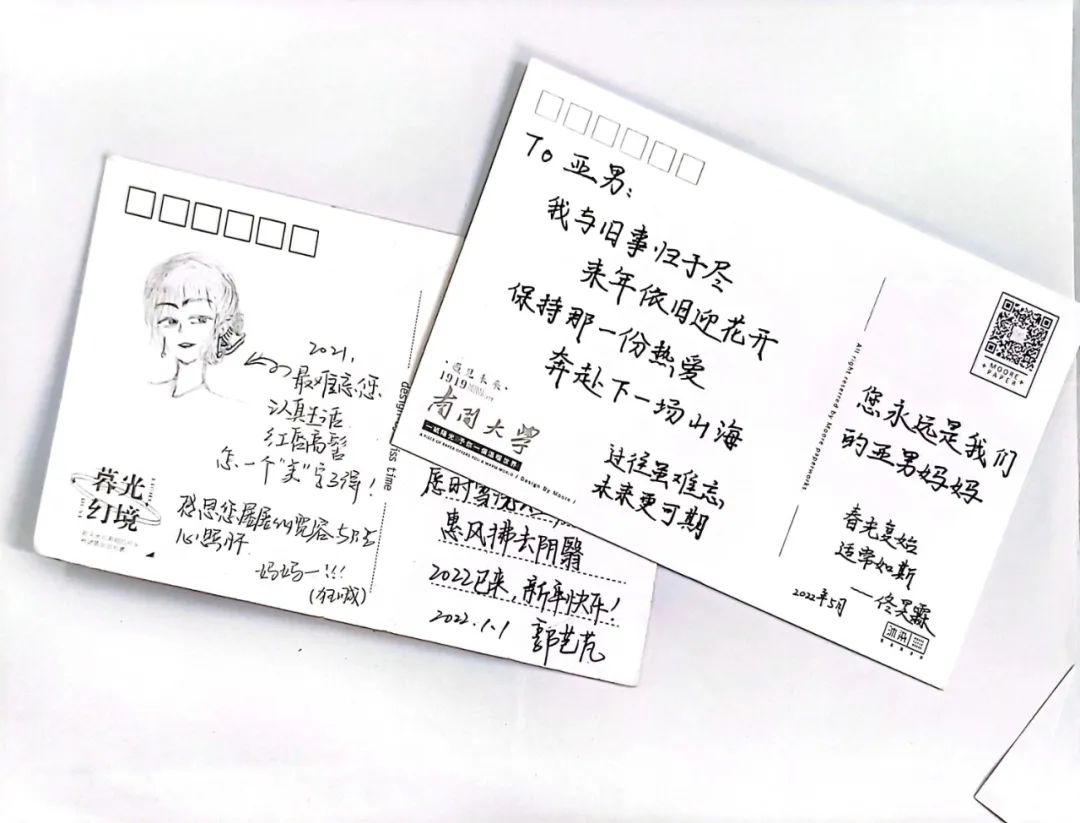 To 亚男：
我与旧事归于尽
来年依旧迎花开
保持那一份热爱
奔赴下一场山海
过往虽难忘
未来更可期
遇见未来
1919
南開大學
A PIECE OF PAPER OFFERS YOU A WARM WORLD / Design By Moore /
All right reserved by Moore paperworks
MOORE
PAPER
您永远是我们
的亚男妈妈
春光复始
适常如斯
——佟昊霖
2022年5月
2021，
最难忘您
认真生活
红唇高髻
怎一个“美”字了得！
感恩您屡屡的宽容与
心照肝
妈妈——!!!
（狂喊）
暮光
幻境
design
iss time
愿时
惠风拂去阴翳
2022已来，新年快乐！
2022.1.1 郭艺芃